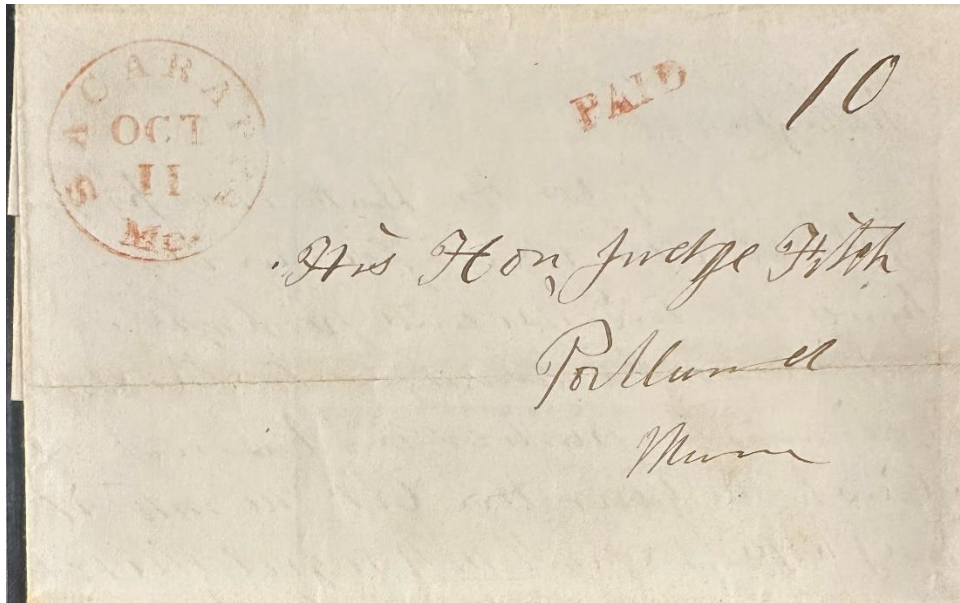 SACARAPPA
OCT
11
Me.
PAID
10
His Hon. Judge Fitch
Portland
Maine